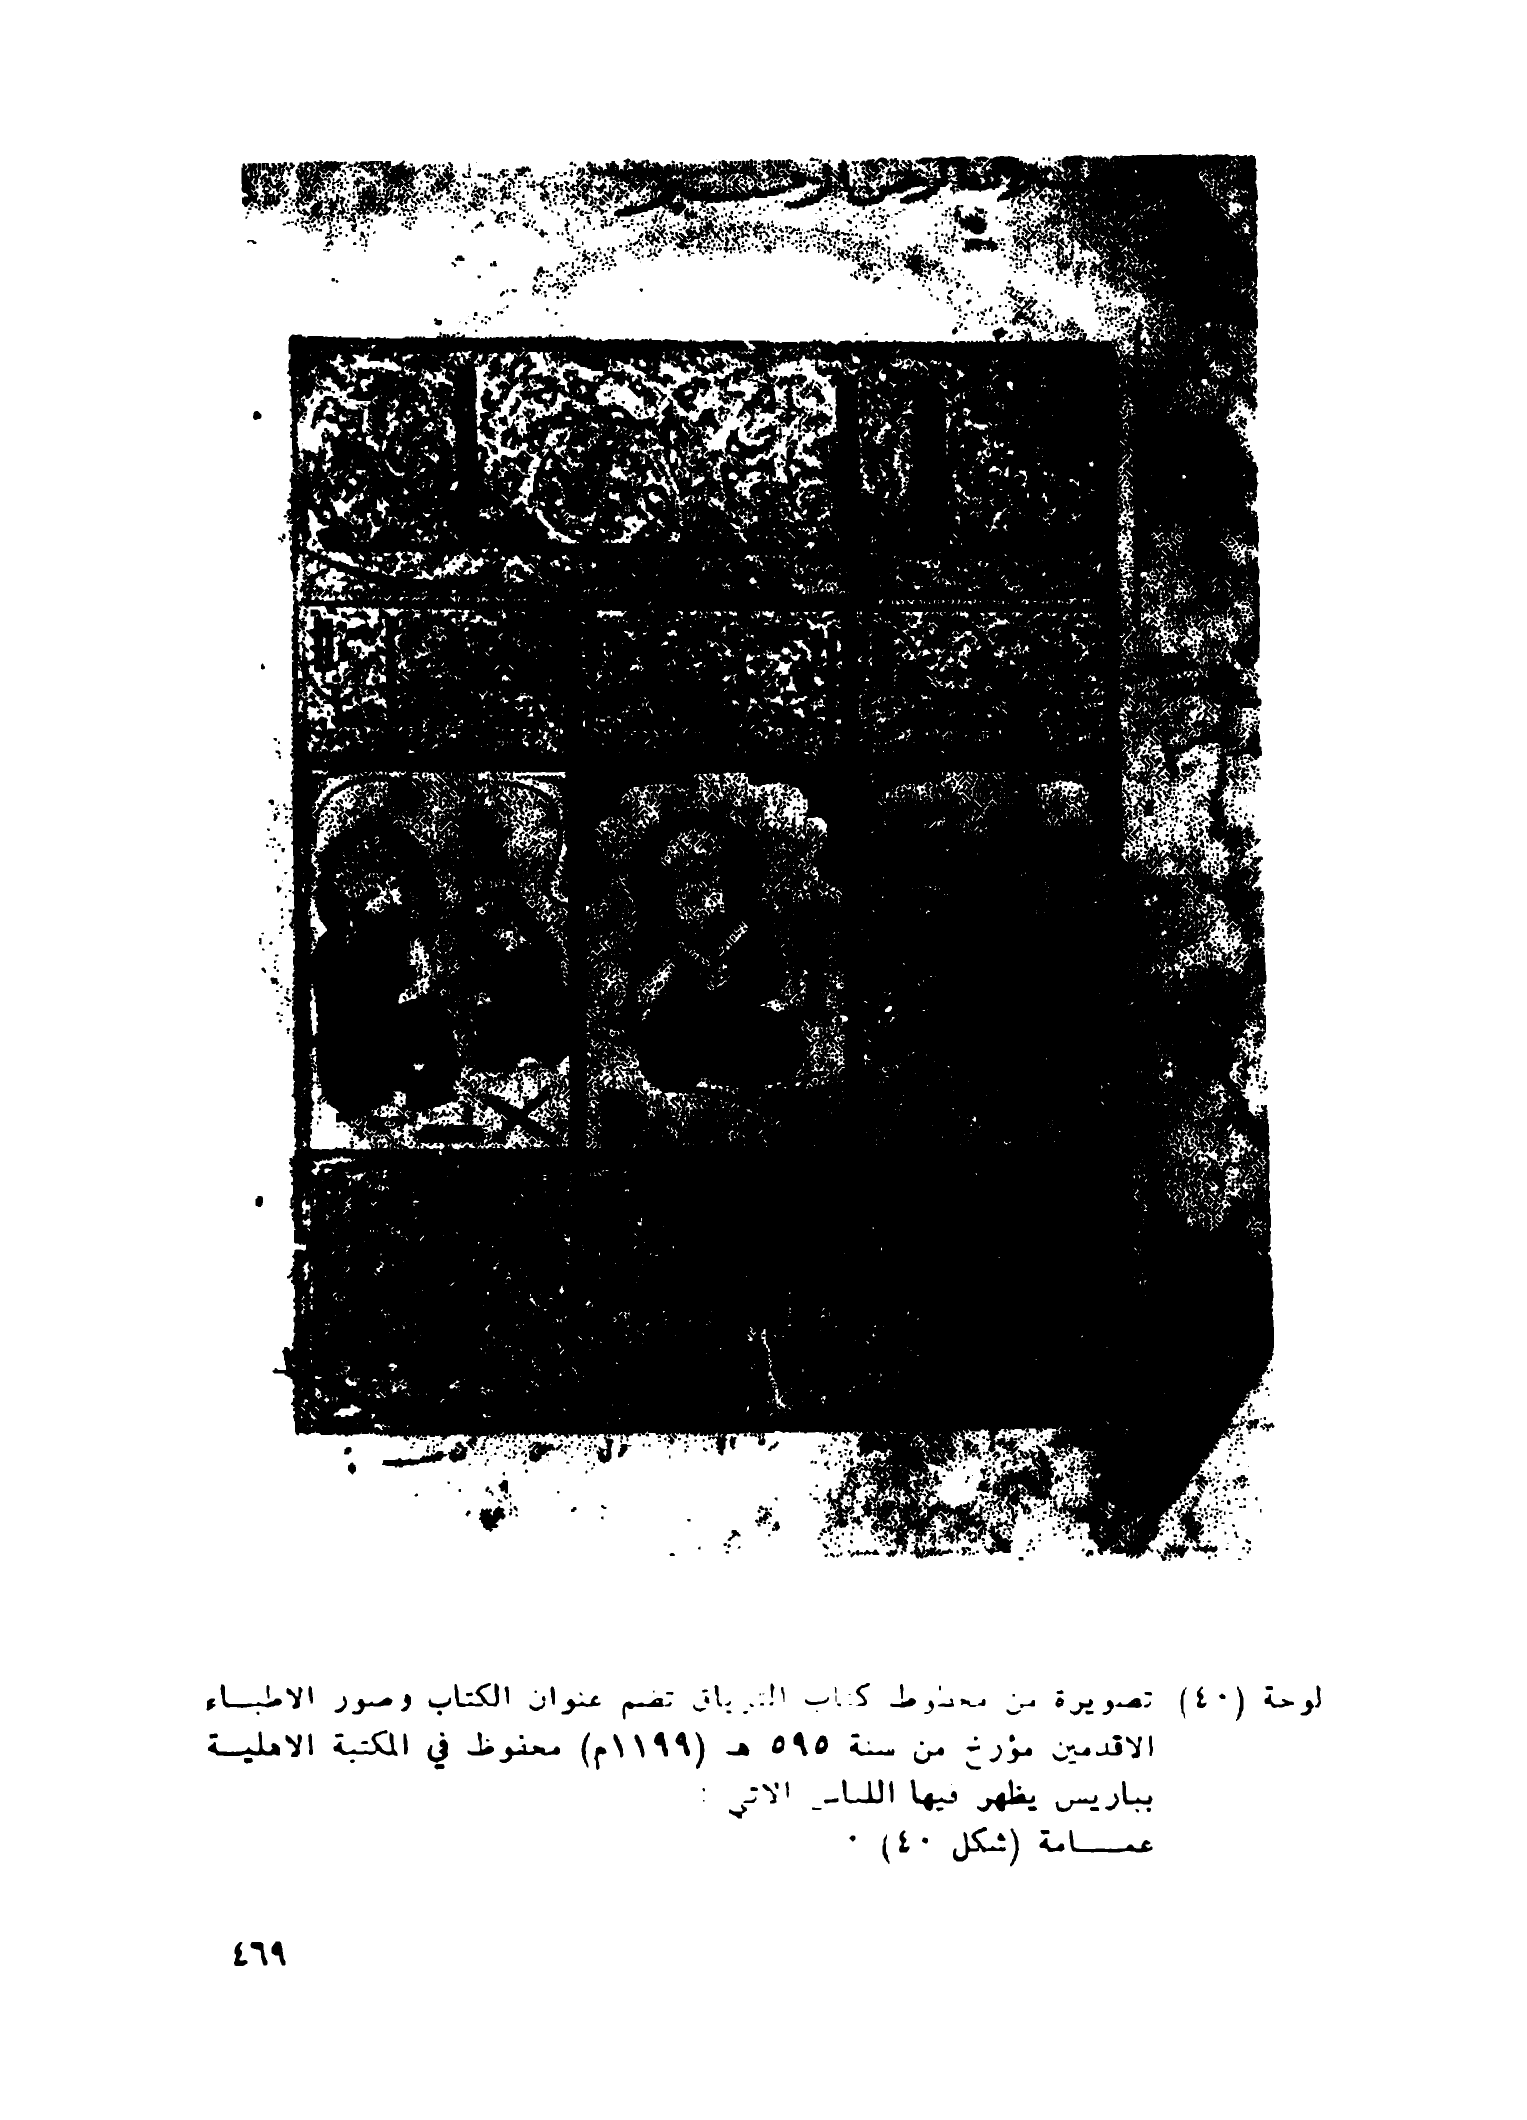 لوحة (٤٠) تصويرة من مخطوط كتاب الترياق تضم عنوان الكتاب وصور الاطبـــاء
الاقدمين مؤرخ من سنة ٥٩٥ هـ (١١٩٩م) محفوظ في المكتبة الاهليـــة
بباريس يظهر فيها اللباس الاتي :
عمـــــامة (شكل ٤٠) ٠
٤٦٩